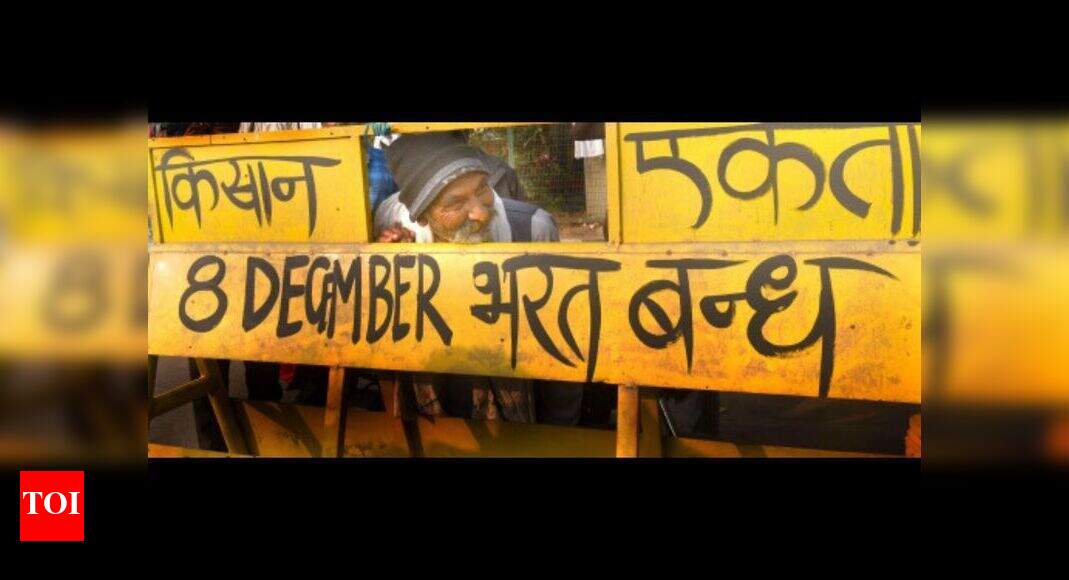 किसान एकता
8 DECEMBER भरत बन्ध
TOI